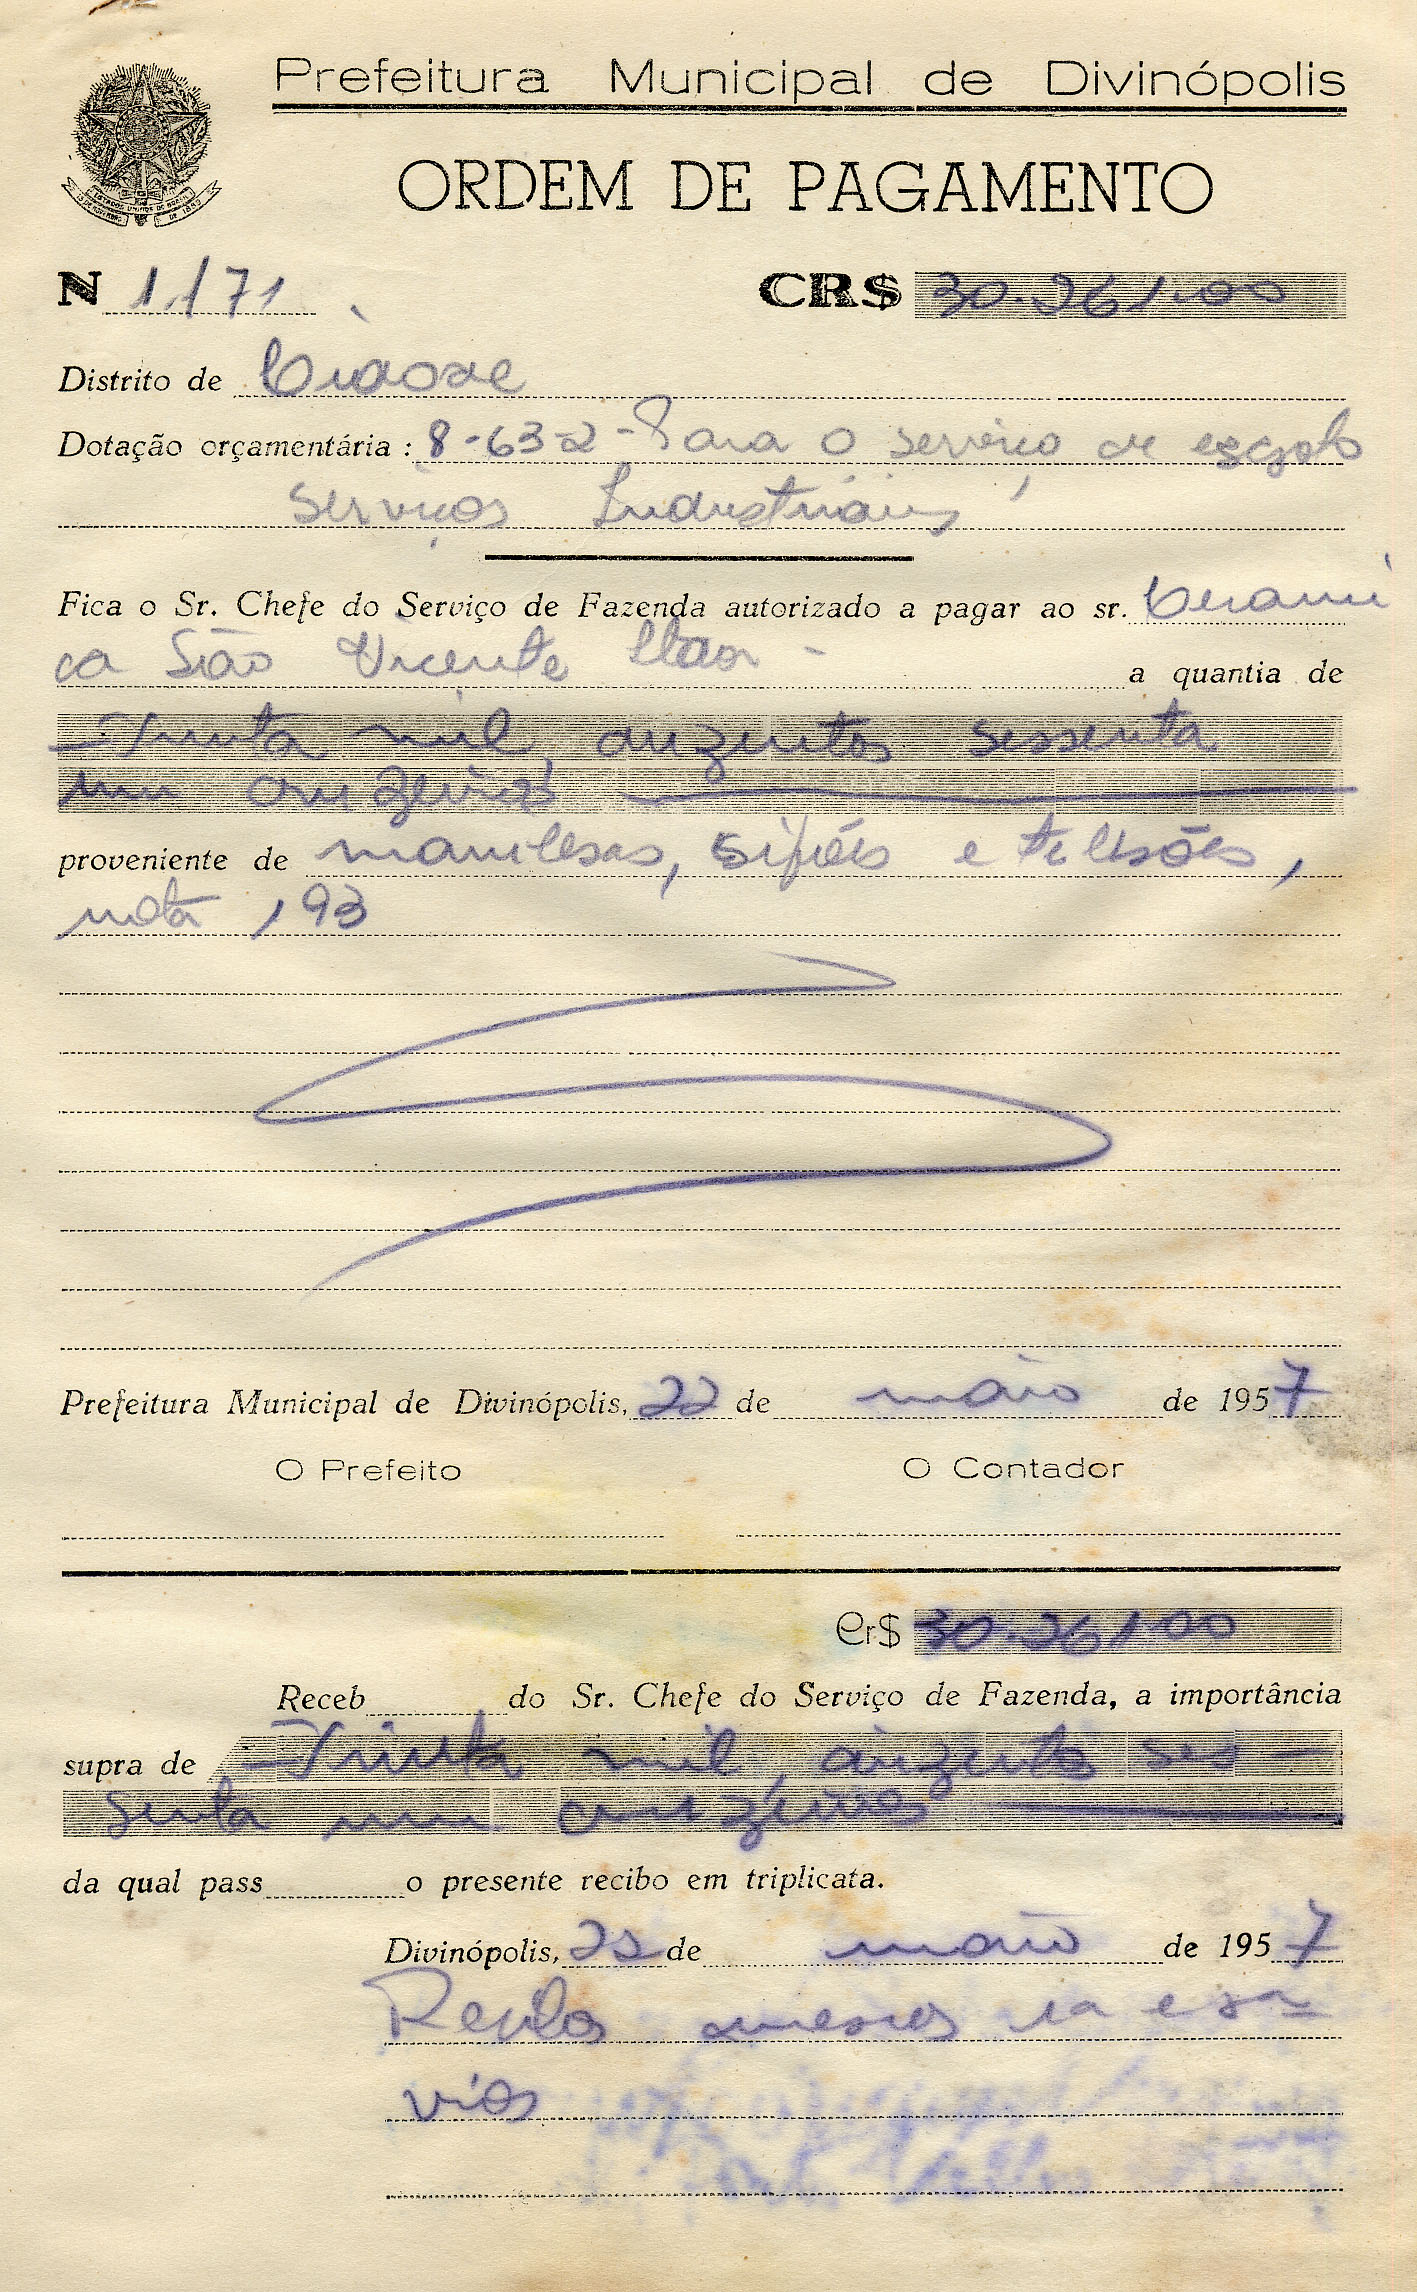 Prefeitura Municipal de Divinópolis
ORDEM DE PAGAMENTO
N 1.171 CR$ 30.261.00
Distrito de Cidade
Dotação orçamentária: 8-63-2 - Para o serviço de esgoto
Serviços Industriais
Fica o Sr. Chefe do Serviço de Fazenda autorizado a pagar ao sr. Cerami
ca São Vicente Ltda - a quantia de
Trinta mil, duzentos sessenta
um cruzeiros
proveniente de manilhas, sifões e telhões,
nota 193
Prefeitura Municipal de Divinópolis, 22 de maio de 1957
O Prefeito O Contador
Cr$ 30.261.00
Receb do Sr. Chefe do Serviço de Fazenda, a importância
supra de Trinta mil, duzentos ses
senta um cruzeiros
da qual pass o presente recibo em triplicata.
Divinópolis, 22 de maio de 1957
Recibos anexos
vias